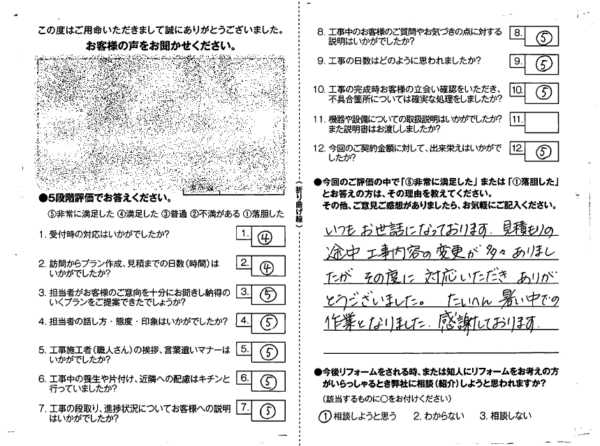 この度はご用命いただきまして誠にありがとうございました。
お客様の声をお聞かせください。
●5段階評価でお答えください。
⑤非常に満足した ④満足した ③普通 ②不満がある ①落胆した
1. 受付時の対応はいかがでしたか?
1. ④
2. 訪問からプラン作成、見積までの日数(時間)は
いかがでしたか?
2. ④
3. 担当者がお客様のご意向を十分にお聞きし納得の
いくプランをご提案できたでしょうか?
3. ⑤
4. 担当者の話し方・態度・印象はいかがでしたか?
4. ⑤
5. 工事施工者(職人さん)の挨拶、言葉遣いマナーは
いかがでしたか?
5. ⑤
6. 工事中の養生や片付け、近隣への配慮はキチンと
行っていましたか?
6. ⑤
7. 工事の段取り、進捗状況についてお客様への説明
はいかがでしたか?
7. ⑤
(折り曲げ線)
8. 工事中のお客様のご質問やお気づきの点に対する
説明はいかがでしたか?
8. ⑤
9. 工事の日数はどのように思われましたか?
9. ⑤
10. 工事の完成時お客様の立会い確認をいただき、
不具合箇所については確実な処理をしましたか?
10. ⑤
11. 機器や設備についての取扱説明はいかがでしたか?
また説明書はお渡ししましたか?
11.
12. 今回のご契約金額に対して、出来栄えはいかがでし
たか?
12. ⑤
●今回のご評価の中で「⑤非常に満足した」または「①落胆した」
とお答えの方は、その理由を教えてください。
その他、ご意見ご感想がありましたら、お気軽にご記入ください。
いつもお世話になっております。見積もりの
途中工事内容の変更が多々ありまし
たがその度に対応いただきありが
とうございました。たいへん暑い中での
作業となりました。感謝しております。
●今後リフォームをされる時、または知人にリフォームをお考えの方
がいらっしゃるとき弊社に相談(紹介)しようと思われますか?
(該当するものに○をお付けください)
① 相談しようと思う 2. わからない 3. 相談しない